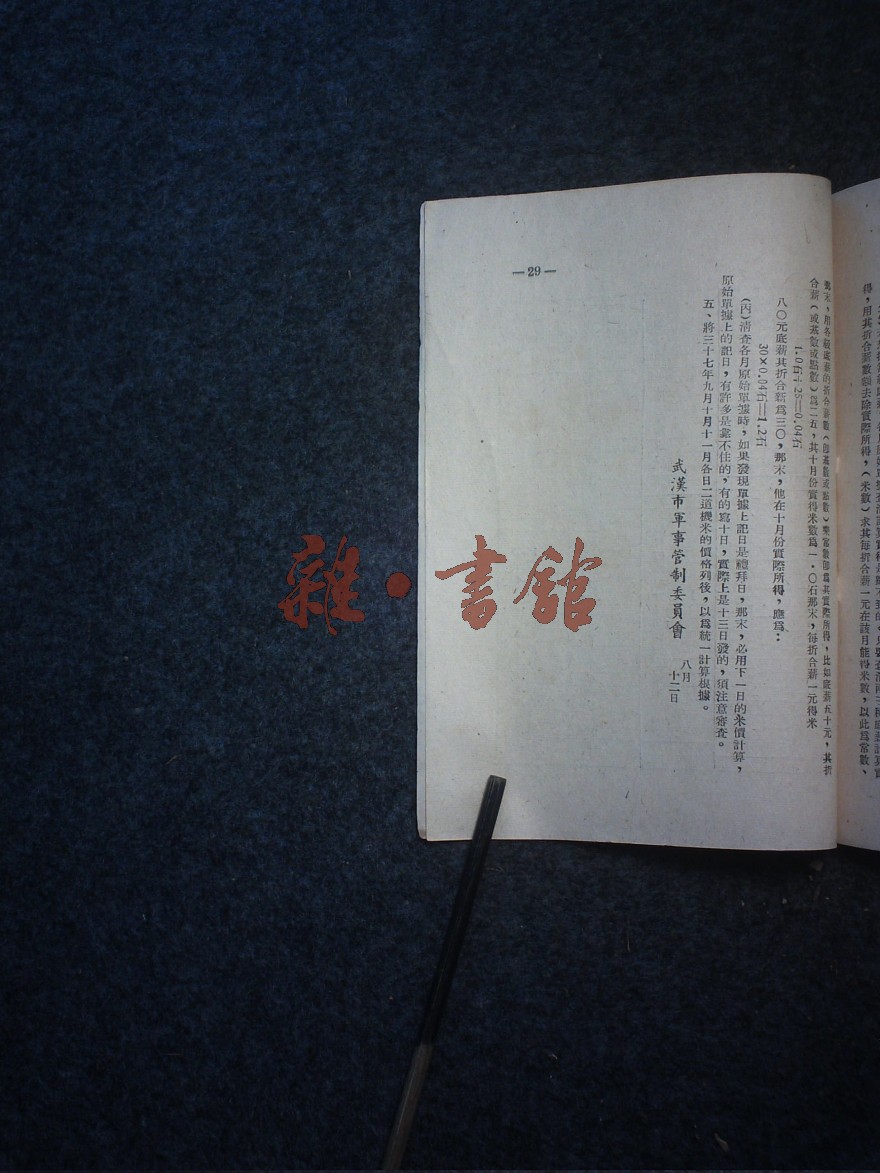 得，用其折合薪數額去除實際所得，（米數）求其每折合薪一元在該月能得米數，以此爲常數、
那末，用各級底薪的折合薪數（卽基數或點數）乘常數卽爲其實際所得，比如底薪五十元，其折
合薪（或基數或點數）爲二五，其十月份實得米數爲一·〇石那末，每折合薪一元得米
1.0石÷25=0.04石
八〇元底薪其折合薪爲三〇，那末，他在十月份實際所得，應爲：
30×0.04石=1.2石
(丙)清查各月原始單據時，如果發現單據上記日是禮拜日，那末，必用下一日的米價計算，
原始單據上的記日，有許多是靠不住的，有的寫十日，實際上是十三日發的，須注意審查。
五、將三十七年九月十月十一月各日二道機米的價格列後，以爲統一計算根據。
武漢市軍事管制委員會
八月
十二日
—29—
雜·書館